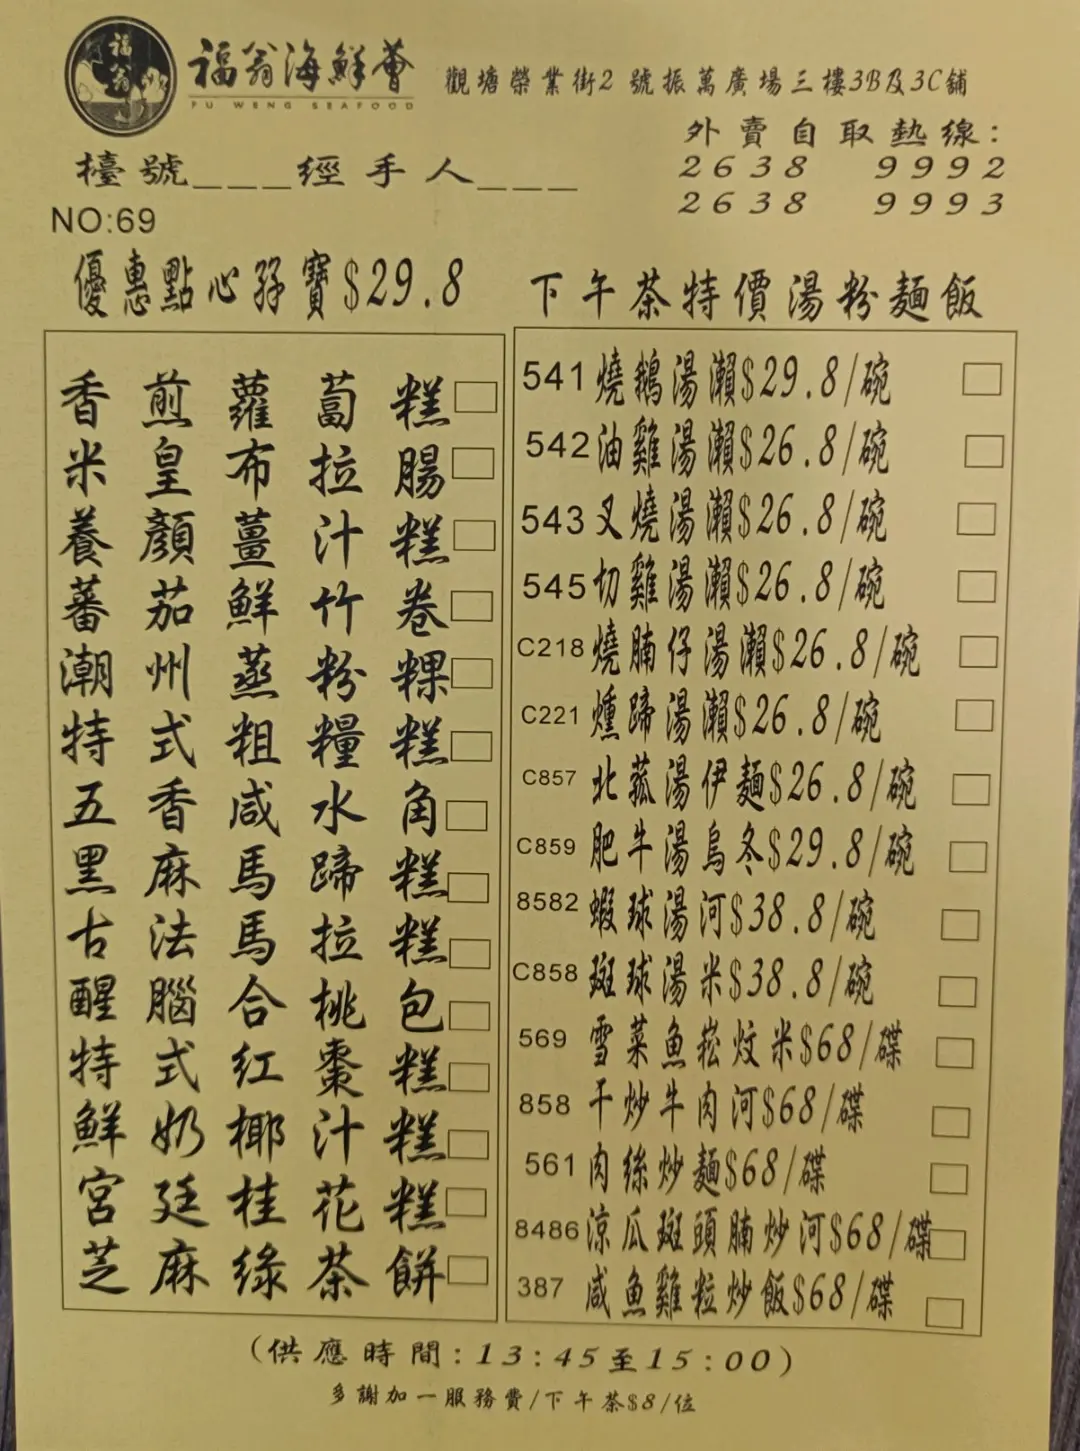 福翁
福翁海鮮薈
FU WENG SEAFOOD
觀塘榮業街2號振萬廣場三樓3B及3C舖
外賣自取熱線:
2638 9992
2638 9993
檯號___經手人___
NO:69
優惠點心孖寶$29.8
香煎蘿蔔糕
米皇布拉腸
養顏薑汁糕
蕃茄鮮竹卷
潮州蒸粉粿
特式粗糧糕
五香咸水角
黑麻馬蹄糕
古法馬拉糕
醒腦合桃包
特式紅棗糕
鮮奶椰汁糕
宮廷桂花糕
芝麻綠茶餅
下午茶特價湯粉麵飯
541燒鵝湯瀨$29.8/碗
542油雞湯瀨$26.8/碗
543叉燒湯瀨$26.8/碗
545切雞湯瀨$26.8/碗
C218燒腩仔湯瀨$26.8/碗
C221燻蹄湯瀨$26.8/碗
C857北菰湯伊麵$26.8/碗
C859肥牛湯烏冬$29.8/碗
8582蝦球湯河$38.8/碗
C858斑球湯米$38.8/碗
569雪菜魚崧炆米$68/碟
858干炒牛肉河$68/碟
561肉絲炒麵$68/碟
8486涼瓜斑頭腩炒河$68/碟
387咸魚雞粒炒飯$68/碟
(供應時間:13:45至15:00)
多謝加一服務費/下午茶$8/位